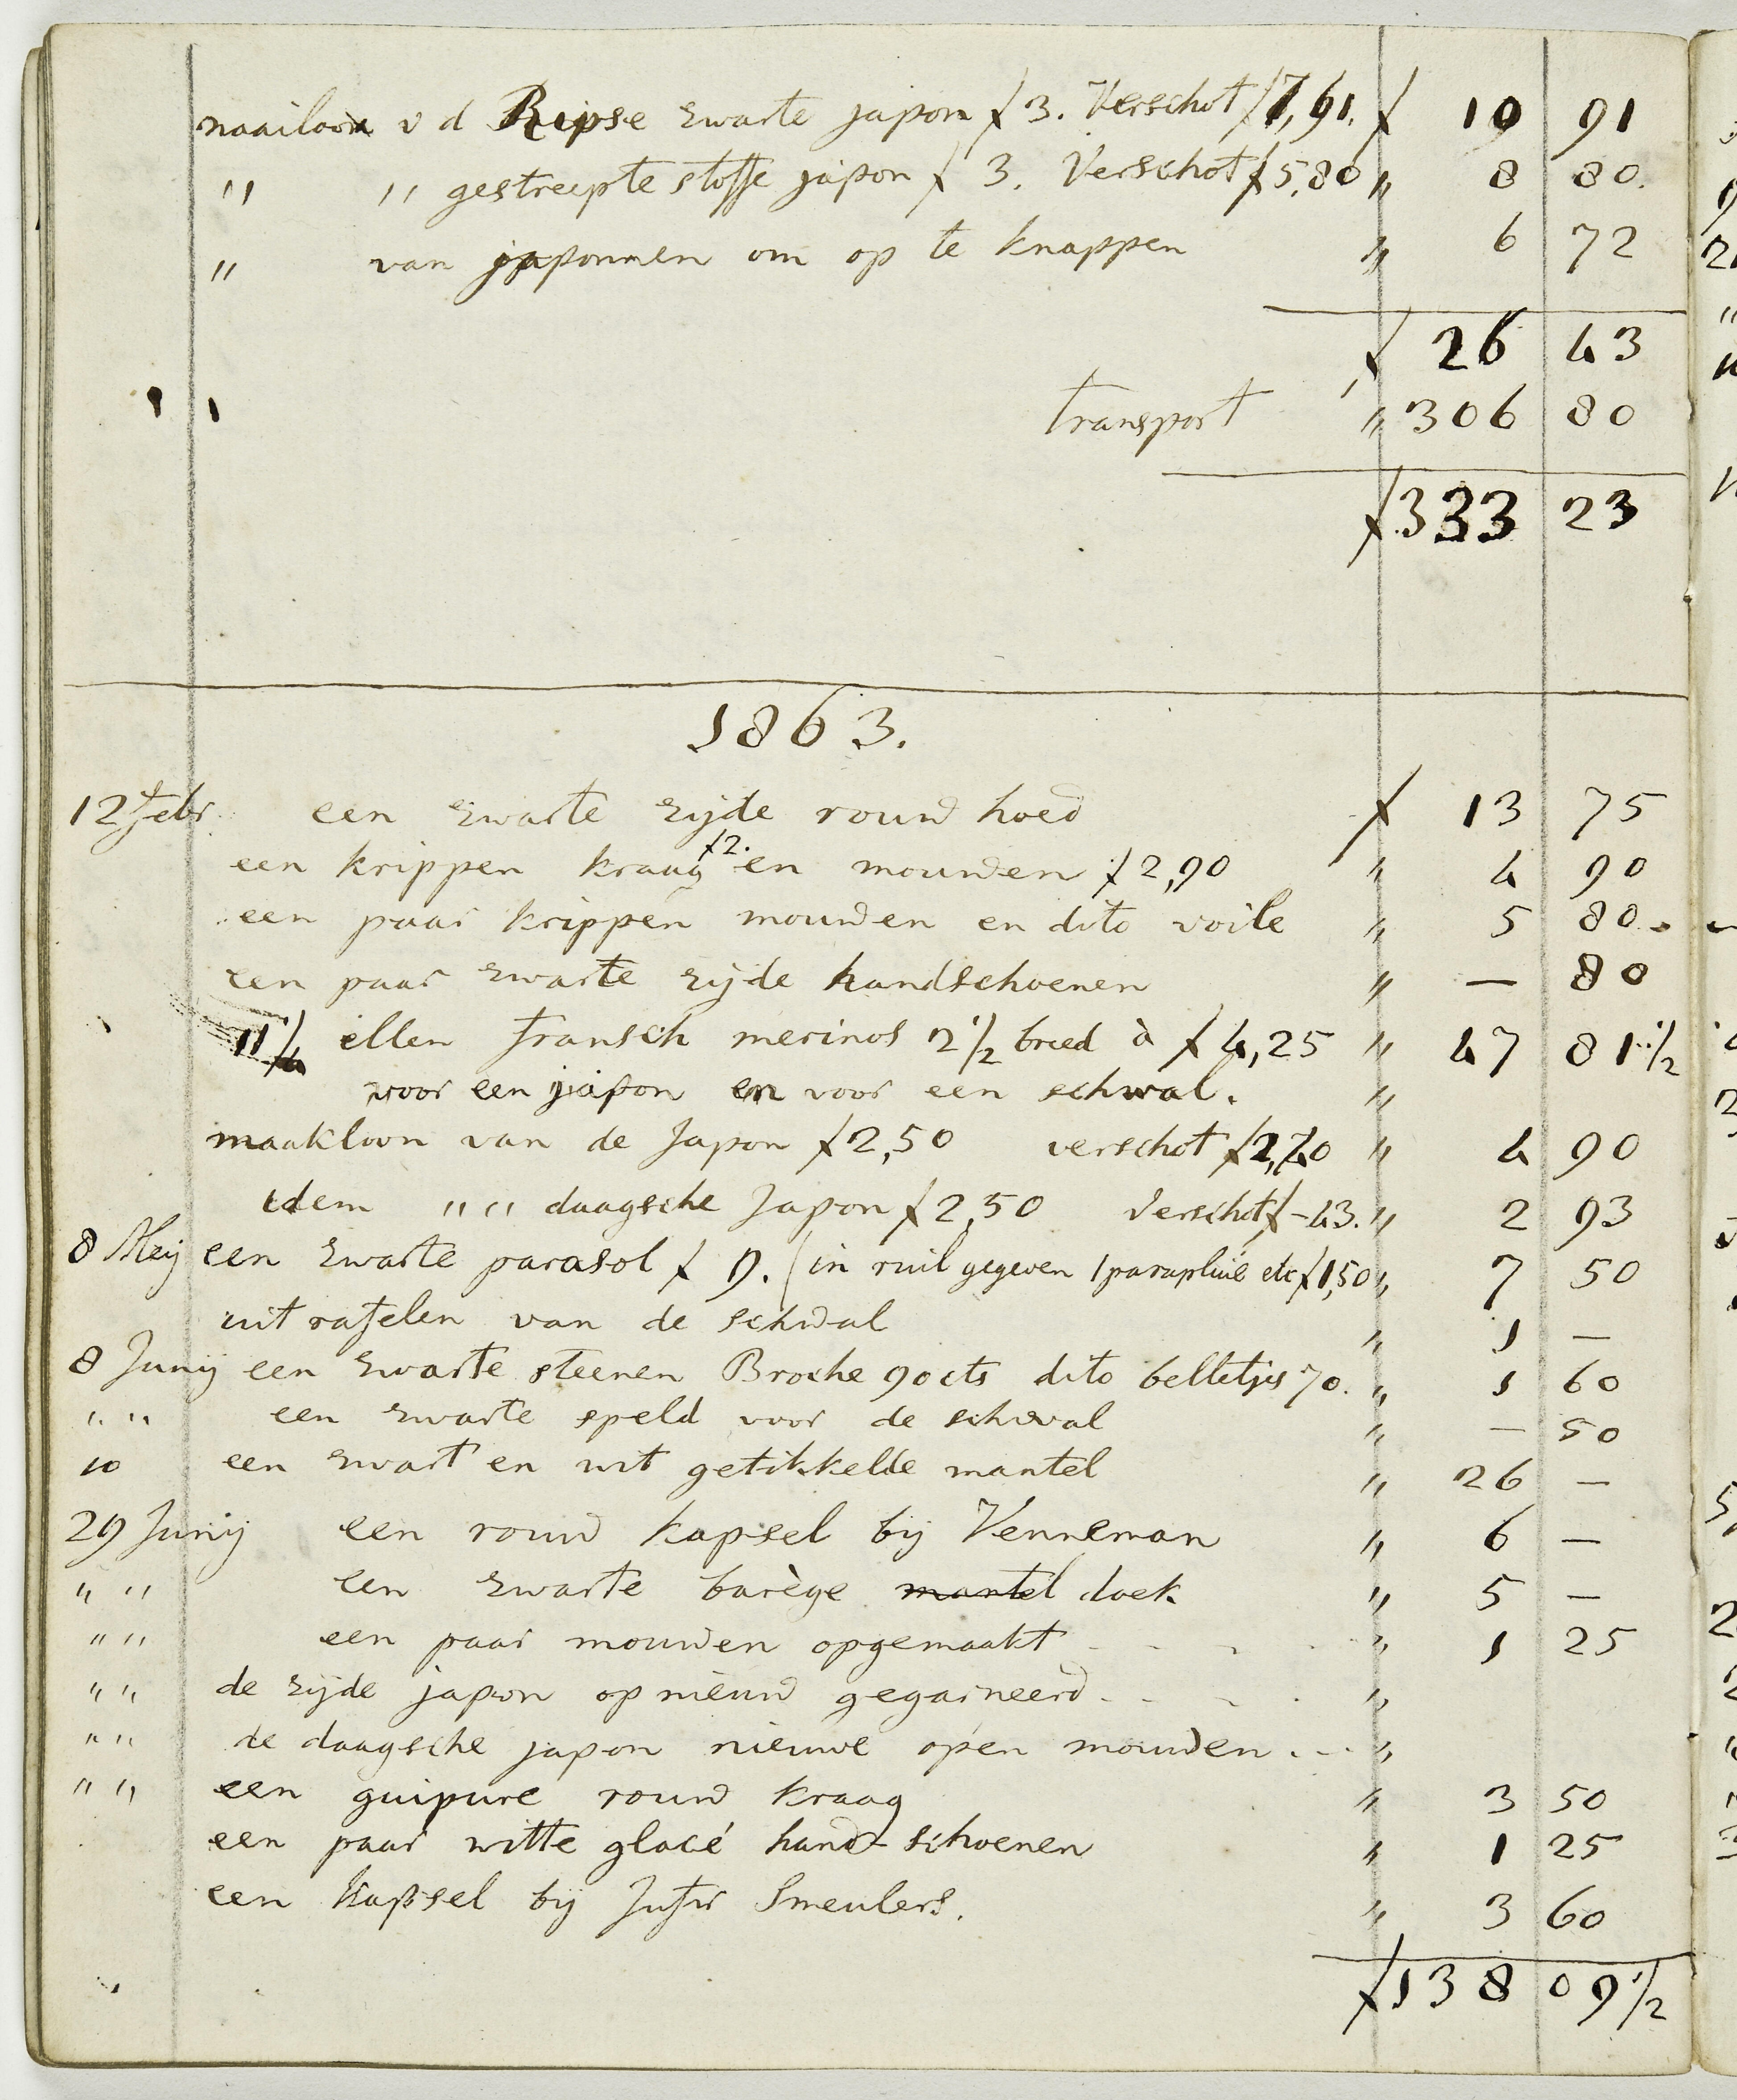 naailoon v d Ripse zwarte japon f 3. Verschot f 7,91. f 10 91
" " gestreepte stoffe japon f 3. Verschot f 5,80 " 8 80.
" van japonnen om op te knappen " 6 72
f 26 43
Transport " 306 80
f 333 23
1863.
12 Febr een zwarte zijde rouw hoed f 13 75
een krippen kraag f 2. en mouwen f 2,90 " 4 90
een paar krippen mouwen en dito voile " 5 80.
een paar zwarte zijde handschoenen " — 80
11 1/4 ellen Fransch merinos 2 1/2 breed à f 4,25 " 47 81 1/2
voor een japon en voor een schwal. "
maakloon van de Japon f 2,50 verschot f 2,40 " 4 90
idem " " daagsche Japon f 2,50 Verschot f - 43. " 2 93
8 Meij een zwarte parasol f 9. (in ruil gegeven 1 parapluië etc f 1,50 " 7 50
uit rafelen van de schwal " 1 —
8 Junij een zwarte steenen Broche 90 cts dito belletjes 70. " 1 60
" " een zwarte speld voor de schwal " — 50
10 een zwart en wit getikkelde mantel " 26 —
29 Junij een rouw kapsel bij Venneman " 6 —
" " een zwarte barège mantel doek " 5 —
" " een paar mouwen opgemaakt - - - - " 1 25
" " de zijde japon op nieuw gegarneerd - - - . "
" " de daagsche japon nieuwe open mouwen . - - "
" " een guipure rouw kraag " 3 50
een paar witte glacé hand-schoenen " 1 25
een kapsel bij Jufr Smeulers. " 3 60
f 138 09 1/2